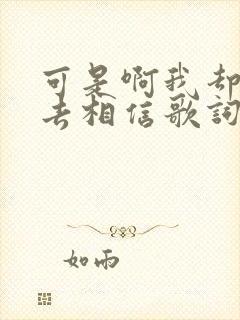 可是啊我却
去相信歌詞
如雨